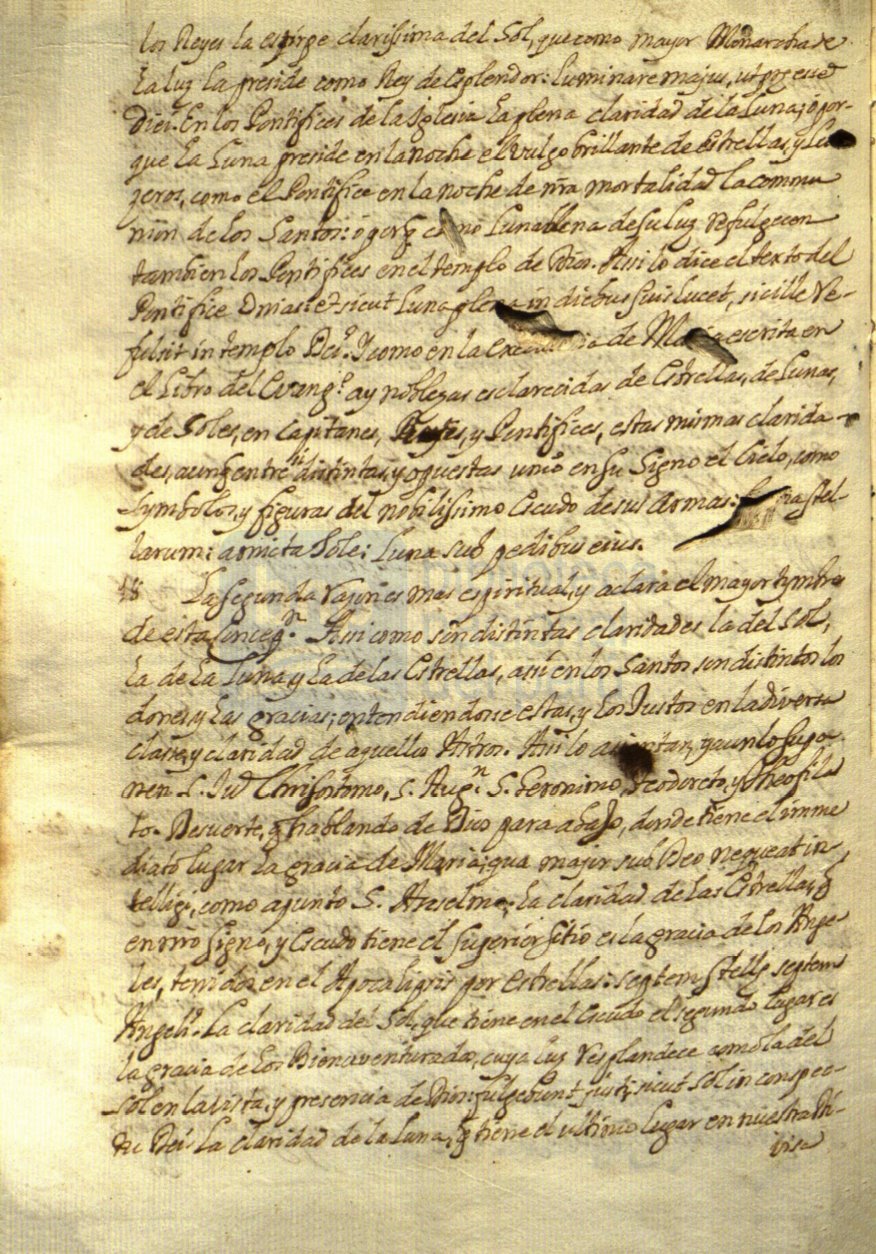 los Reyes la estirpe clarissima del Sol, que como mayor Monarcha de
la luz la preside como Rey de esplendor: luminare majus, ut præesset
diei. En los Pontifices de la Iglesia la plena claridad de la Luna; ó por-
que la Luna preside en la noche el vulgo brillante de estrellas, y Lu
zeros, como el Pontifice en la noche de nrã mortalidad la commu
nion de los Santos: ó porq̃ como Luna llena de su luz refulgecen
tambien los Pontifices en el templo de Dios. Assi lo dice el texto del
Pontifice Onias: et sicut Luna plena in diebus suis lucet, sic ille re-
fulsit in templo Dei. Y como en la de Maria escrita en
el Libro del Evangº ay noblezas esclarecidas de Estrellas, de Lunas,
y de Soles, en Capitanes, Reyes, y Pontifices, estas mismas clarida-
des, aunq̃ entre si distintas, y opuestas unió en su Signo el Cielo, como
symbolos, y figuras del nobilissimo Escudo de sus Armas: stel-
larum: amicta Sole: Luna sub pedibus eius.
18 La segunda razon es mas espiritual, y aclara el mayor tymbre
de esta Concepn. Assi como son distintas claridades la del Sol,
la de la Luna, y la de las Estrellas, assi en los Santos son distintos los
dones, y las gracias; entendiendose estas, y los Justos en la diversa
clase, y claridad de aquellos Astros. Assi lo assientan, y aun lo supo
nen S. Juº Chrisostomo, S. Augn. S. Geronimo, Teodoreto, y Theofila
to. De suerte, q̃ hablando de Dios para abajo, donde tiene el imme
diato lugar la gracia de Maria; qua major sub Deo nequeat in
telligi, como apunto S. Anselmo; la claridad de las Estrellas, q̃
en nrõ signo, y Escudo tiene el superior sitio es la gracia de los Ange
les, tenidos en el Apocalipsis por estrellas: septem stellę septem
Angeli. La claridad del Sol, que tiene en el Escudo el segundo lugar es
la gracia de los Bienaventurados, cuya luz resplandece como la del
Sol en la vista, y presencia de Dios: fulgebunt justi sicut Sol in conspec-
tu Dei. La claridad de la Luna, q̃ tiene el ultimo lugar en nuestra Di-
visa
biblioteca